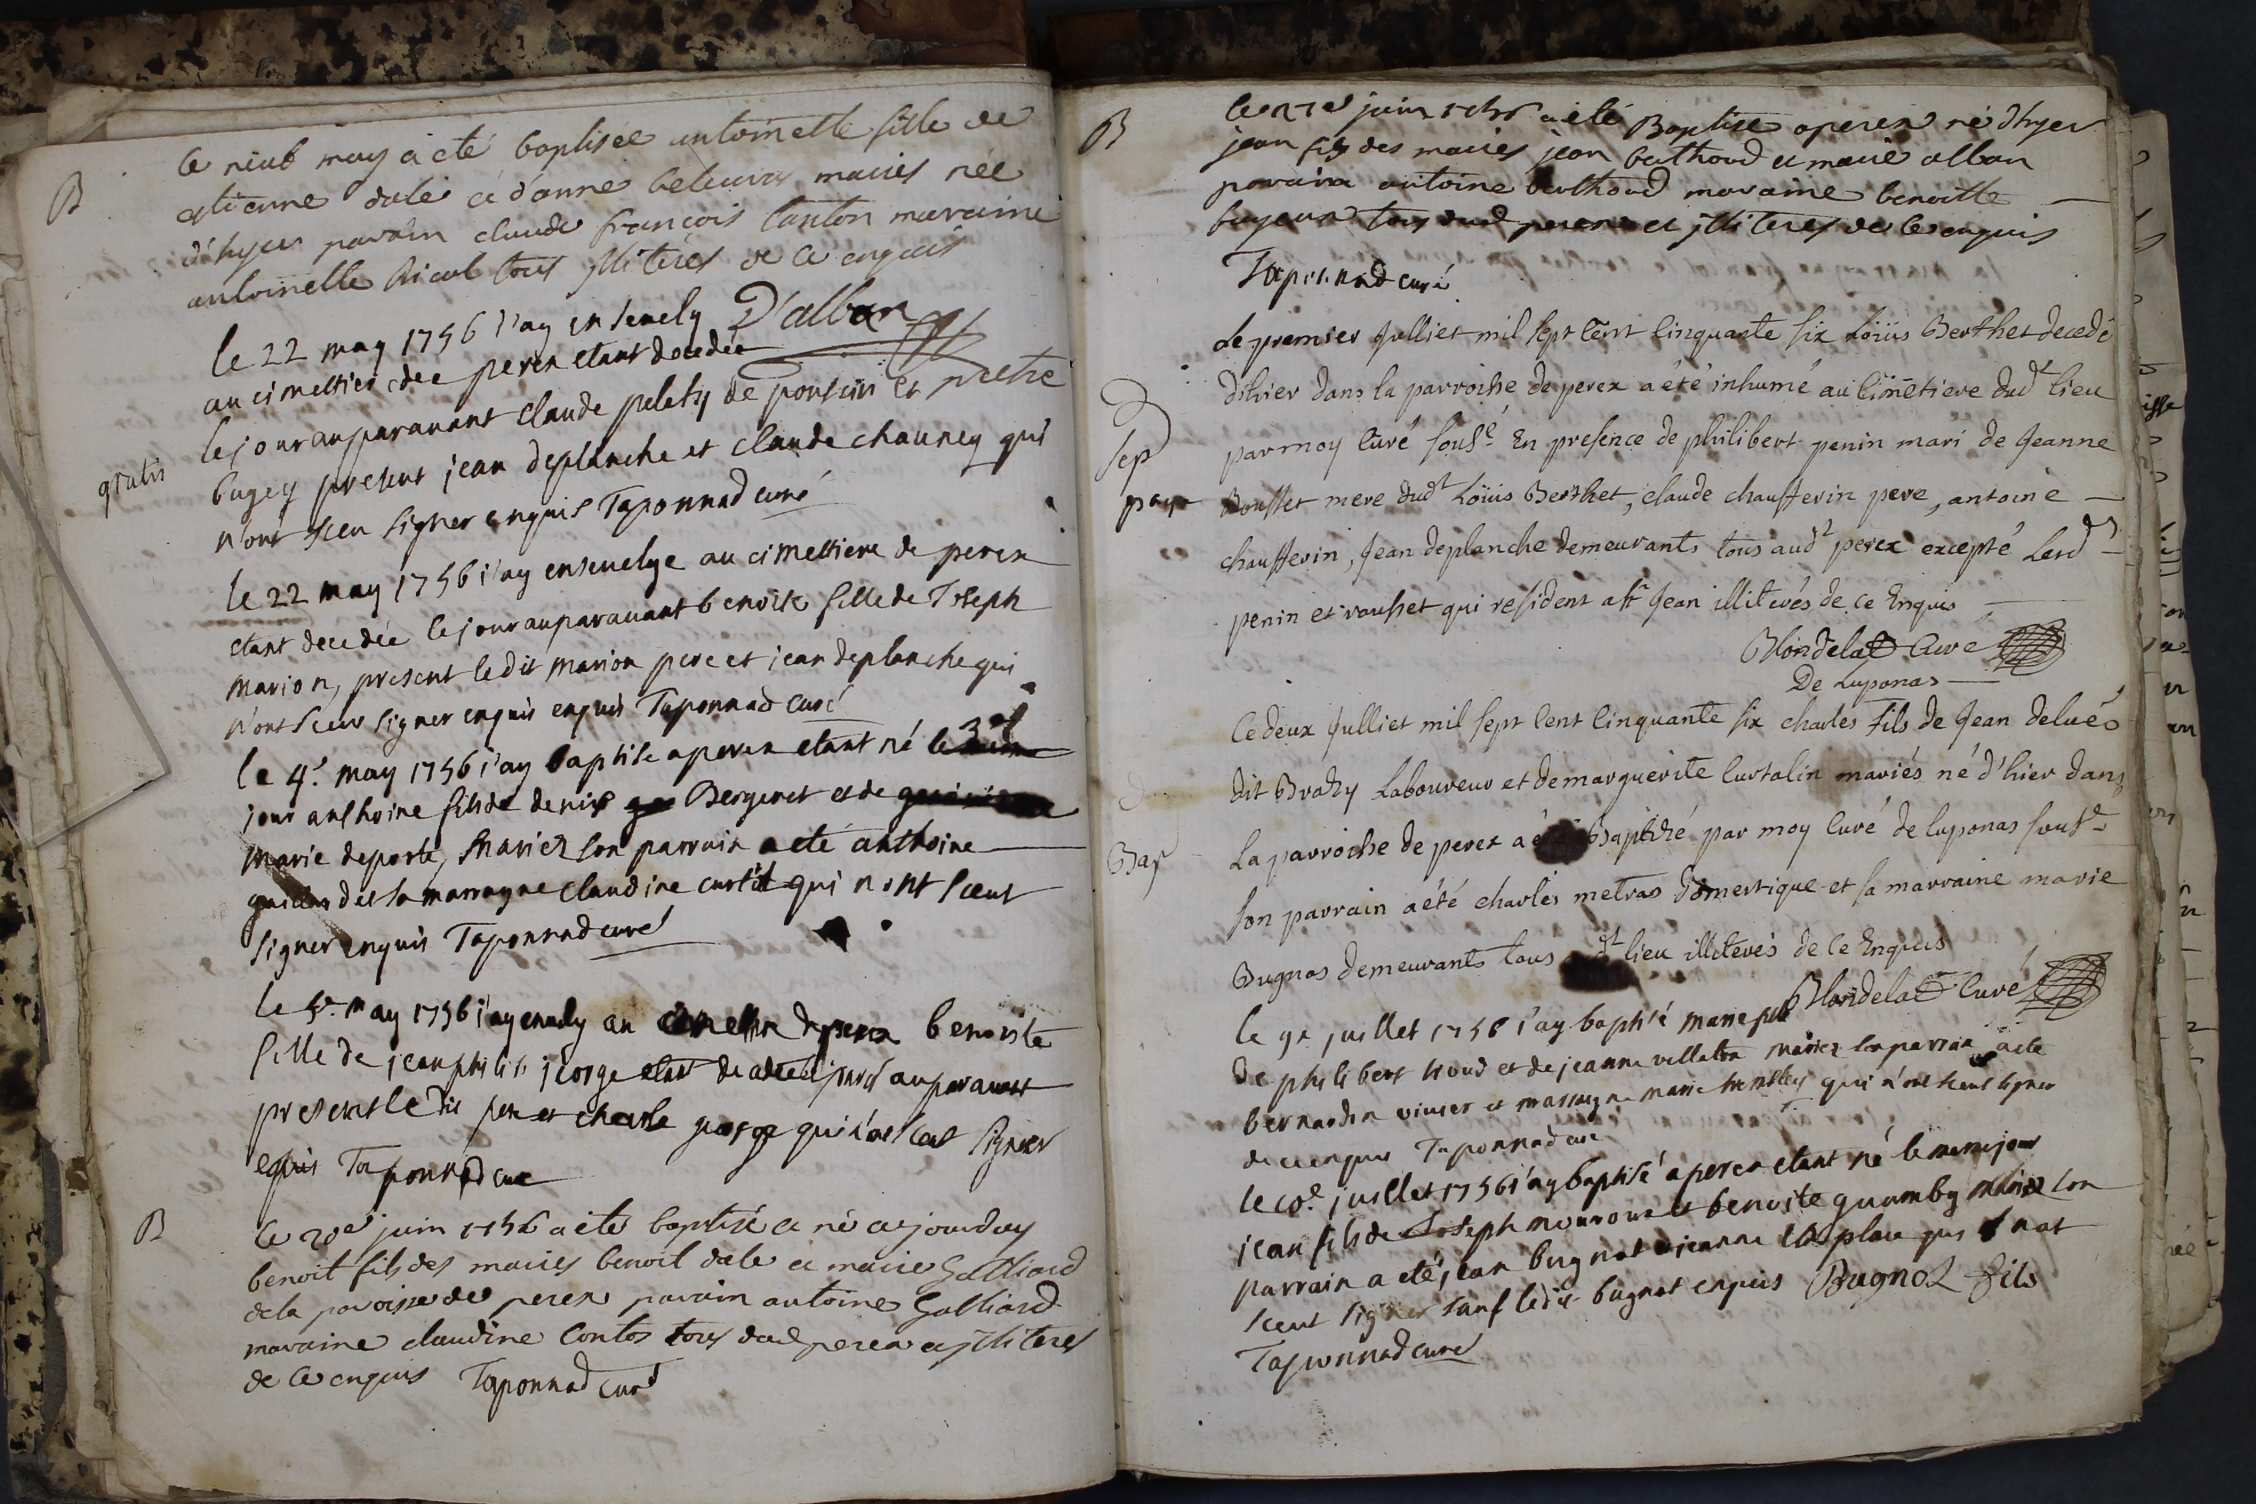 B
le neuf may a eté baptisée antoinette fille de
etienne dalé et d'anne mariés née
d'hyer parain claude françois tanton maraine
antoinette Nicol tous illiteres de ce enquis
D'alban
prestre
gratis
le 22 may 1756 j'ay ensevely
au cimettier de perex etant decedée
le jour auparavant claude pelety de poncin en
bugey present jean deplanche et claude chauney qui
n'ont sceu signer enquis Taponnad curé
le 22 may 1756 j'ay ensevelye au cimettiere de perex
etant decedée le jour auparavant benoite fille de Joseph
marion, present ledit marion pere et jean deplanche qui
n'ont sceus signer enquis enquis Taponnad curé
le 4e. may 1756 j'ay baptise a perex etant né le 3e
jour anthoine fils de denis Bergeret et de
marie deporte, mariez son parrain a eté anthoine
et sa marrayne claudine curtil qui n'ont sceut
signer enquis Taponnad curé
le 5e. may 1756 j'ay au de perex benoiste
fille de jean philib. jeorge etant decedée auparavant
present le dit pere et charle george qui n'ont sceut signer
equis Taponnad cure
B
le 20e juin 1756 a eté baptisé et né ce jourduy
benoit fils des mariés benoit dale et marie Galliard
de la paroisse de perex parain antoine Galliard
maraine claudine Contos tous dud perex et illiteres
de ce enquis Taponnad curé
B
le 27e juin 1756 a eté Baptise a perex né d'hyer
jean fils des mariés jean berthoud et marie alban
parain antoine berthoud maraine benoitte
buyeur tous dud perex et illiteres de ce enquis
Taponnad curé
Sep
paye
Le premier Julliet mil sept cent cinquante six Loüis Berthet decedé
d'hier dans la parroiche de perex a été inhumé au cimetiere dudt lieu
par moy Curé sousé. En presence de philibert penin mari de Jeanne
Vousset mere dudt Loüis Berthet, claude chaufferin pere, antoine
chaufferin, Jean deplanche demeurants tous audt perex excepté Lesd
penin et vousset qui resident a st Jean illiterés de ce Enquis
Blondelat Curé
De Luponas
Bap
Le deux Julliet mil sept cent cinquante six charles fils de Jean delué
dit Brazy Laboureur et de marguerite Curtalin mariés né d'hier dans
La parroiche de perex a été Baptizé par moy Curé de luponas sousé
son parrain a été charles metras domestique et sa marraine marie
Bugnos demeurants tous lieu illiterés de ce Enquis
Blondelat Curé
le 9e juillet 1756 j'ay baptisé marie
de philibert troud et de jeanne villeton mariez son parrain a ete
bernardin vivier et marrayne marie qui n'ont sceut signer
de ce enquis Taponnad cure
le 10e. juillet 1756 j'ay baptisé a perex etant né le mesme jour
jean fils de Joseph et benoiste mariez son
parrain a eté jean bugnot et jeanne qui n'ont
sceut signer sauf ledit bugnot enquis Bugnot fils
Taponnad curé